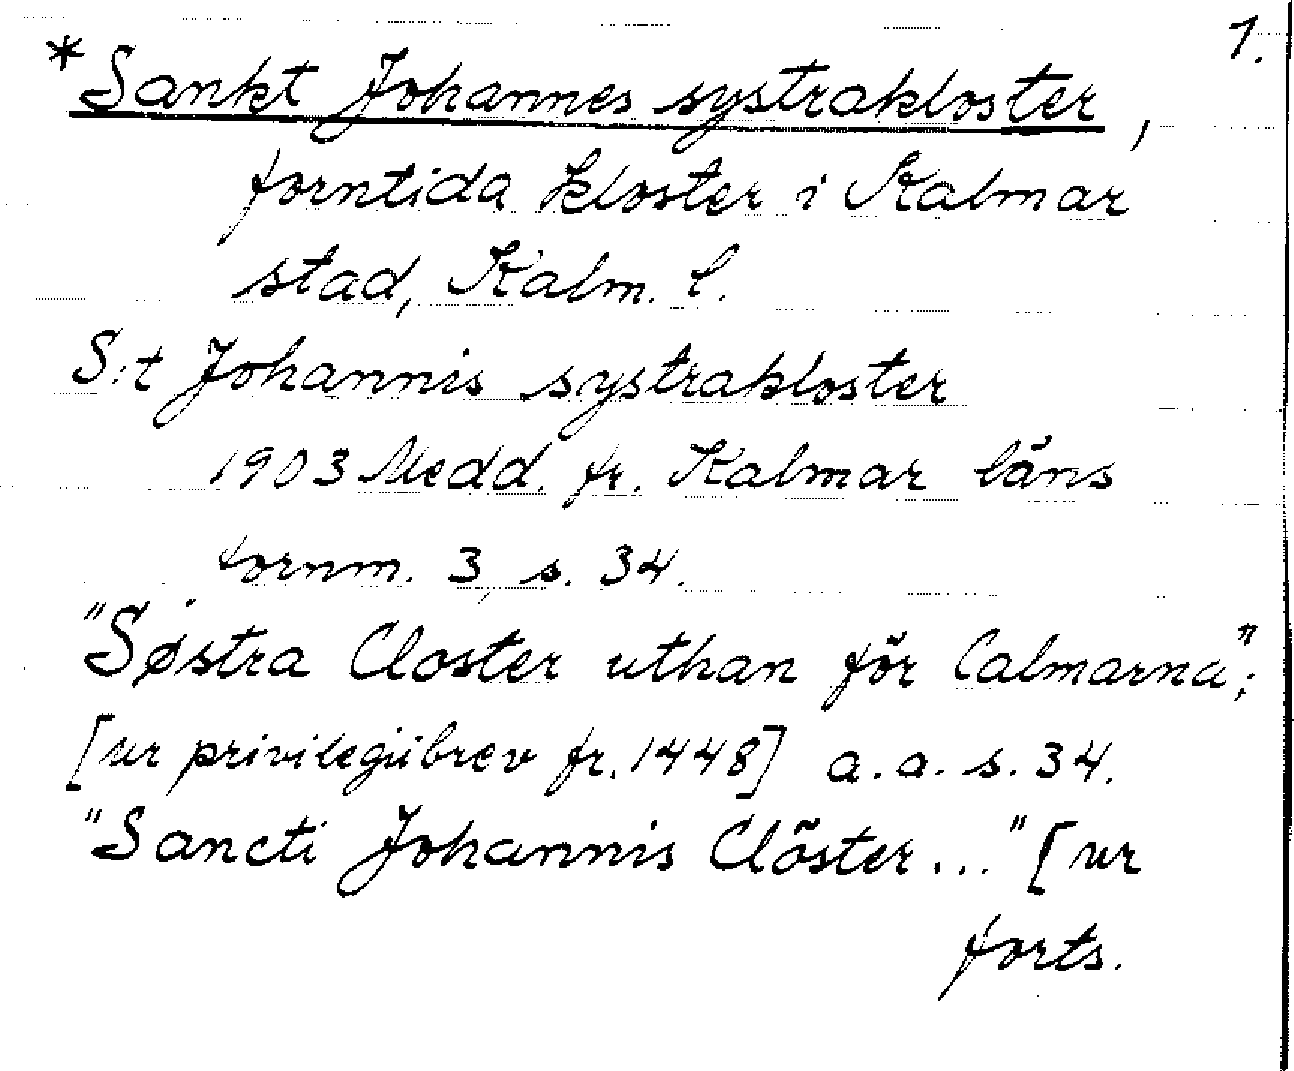 1.
*Sankt Johannes systrakloster,
forntida kloster i Kalmar
stad, Kalm. l.
S:t Johannis systrakloster
1903 Medd. fr. Kalmar läns
fornm. 3, s. 34.
"Søstra Closter uthan för Calmarna";
[ur privilegiibrev fr. 1448] a.a. s. 34.
"Sancti Johannis Clöster..." [ur
forts.